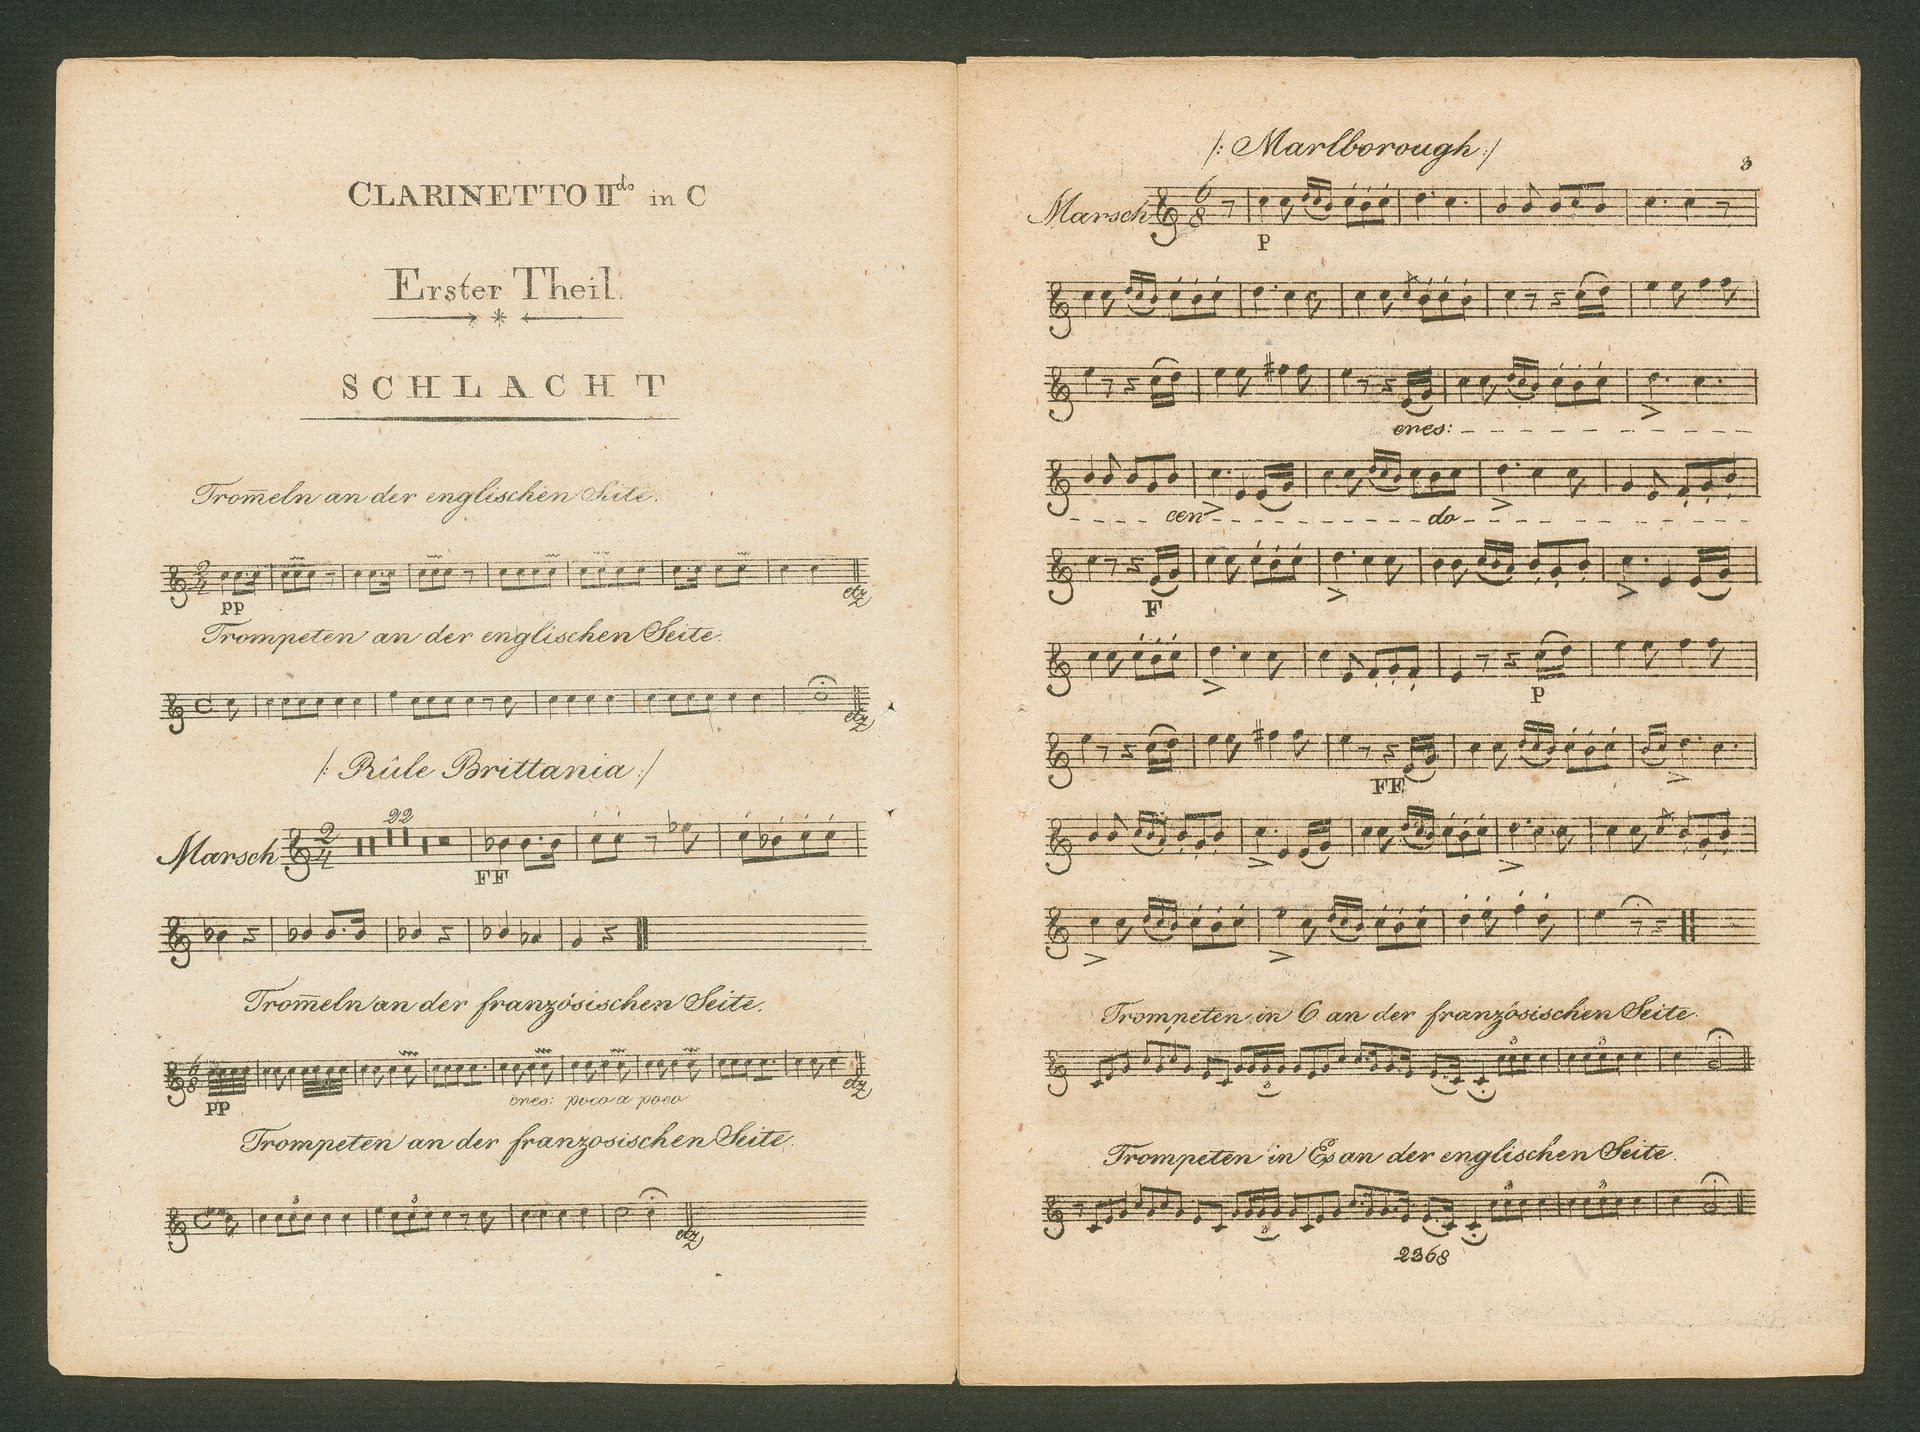 CLARINETTO IIdo in C
Erster Theil.
SCHLACHT
Trom̄eln an der englischen Seite.
pp
etz
Trompeten an der englischen Seite.
etz
/: Rûle Brittania :/
Marsch
2 4
22
FF
Trom̄eln an der französischen Seite.
6 8
pp
cres: poco a poco
etz
Trompeten an der franzosischen Seite.
3 3
etz
/: Marlborough :/
3
Marsch
6 8
p
cres:
cen
do
F
p
FF
Trompeten in C an der französischen Seite.
3 3
3
Trompeten in Es an der englischen Seite.
3 3
3
2368